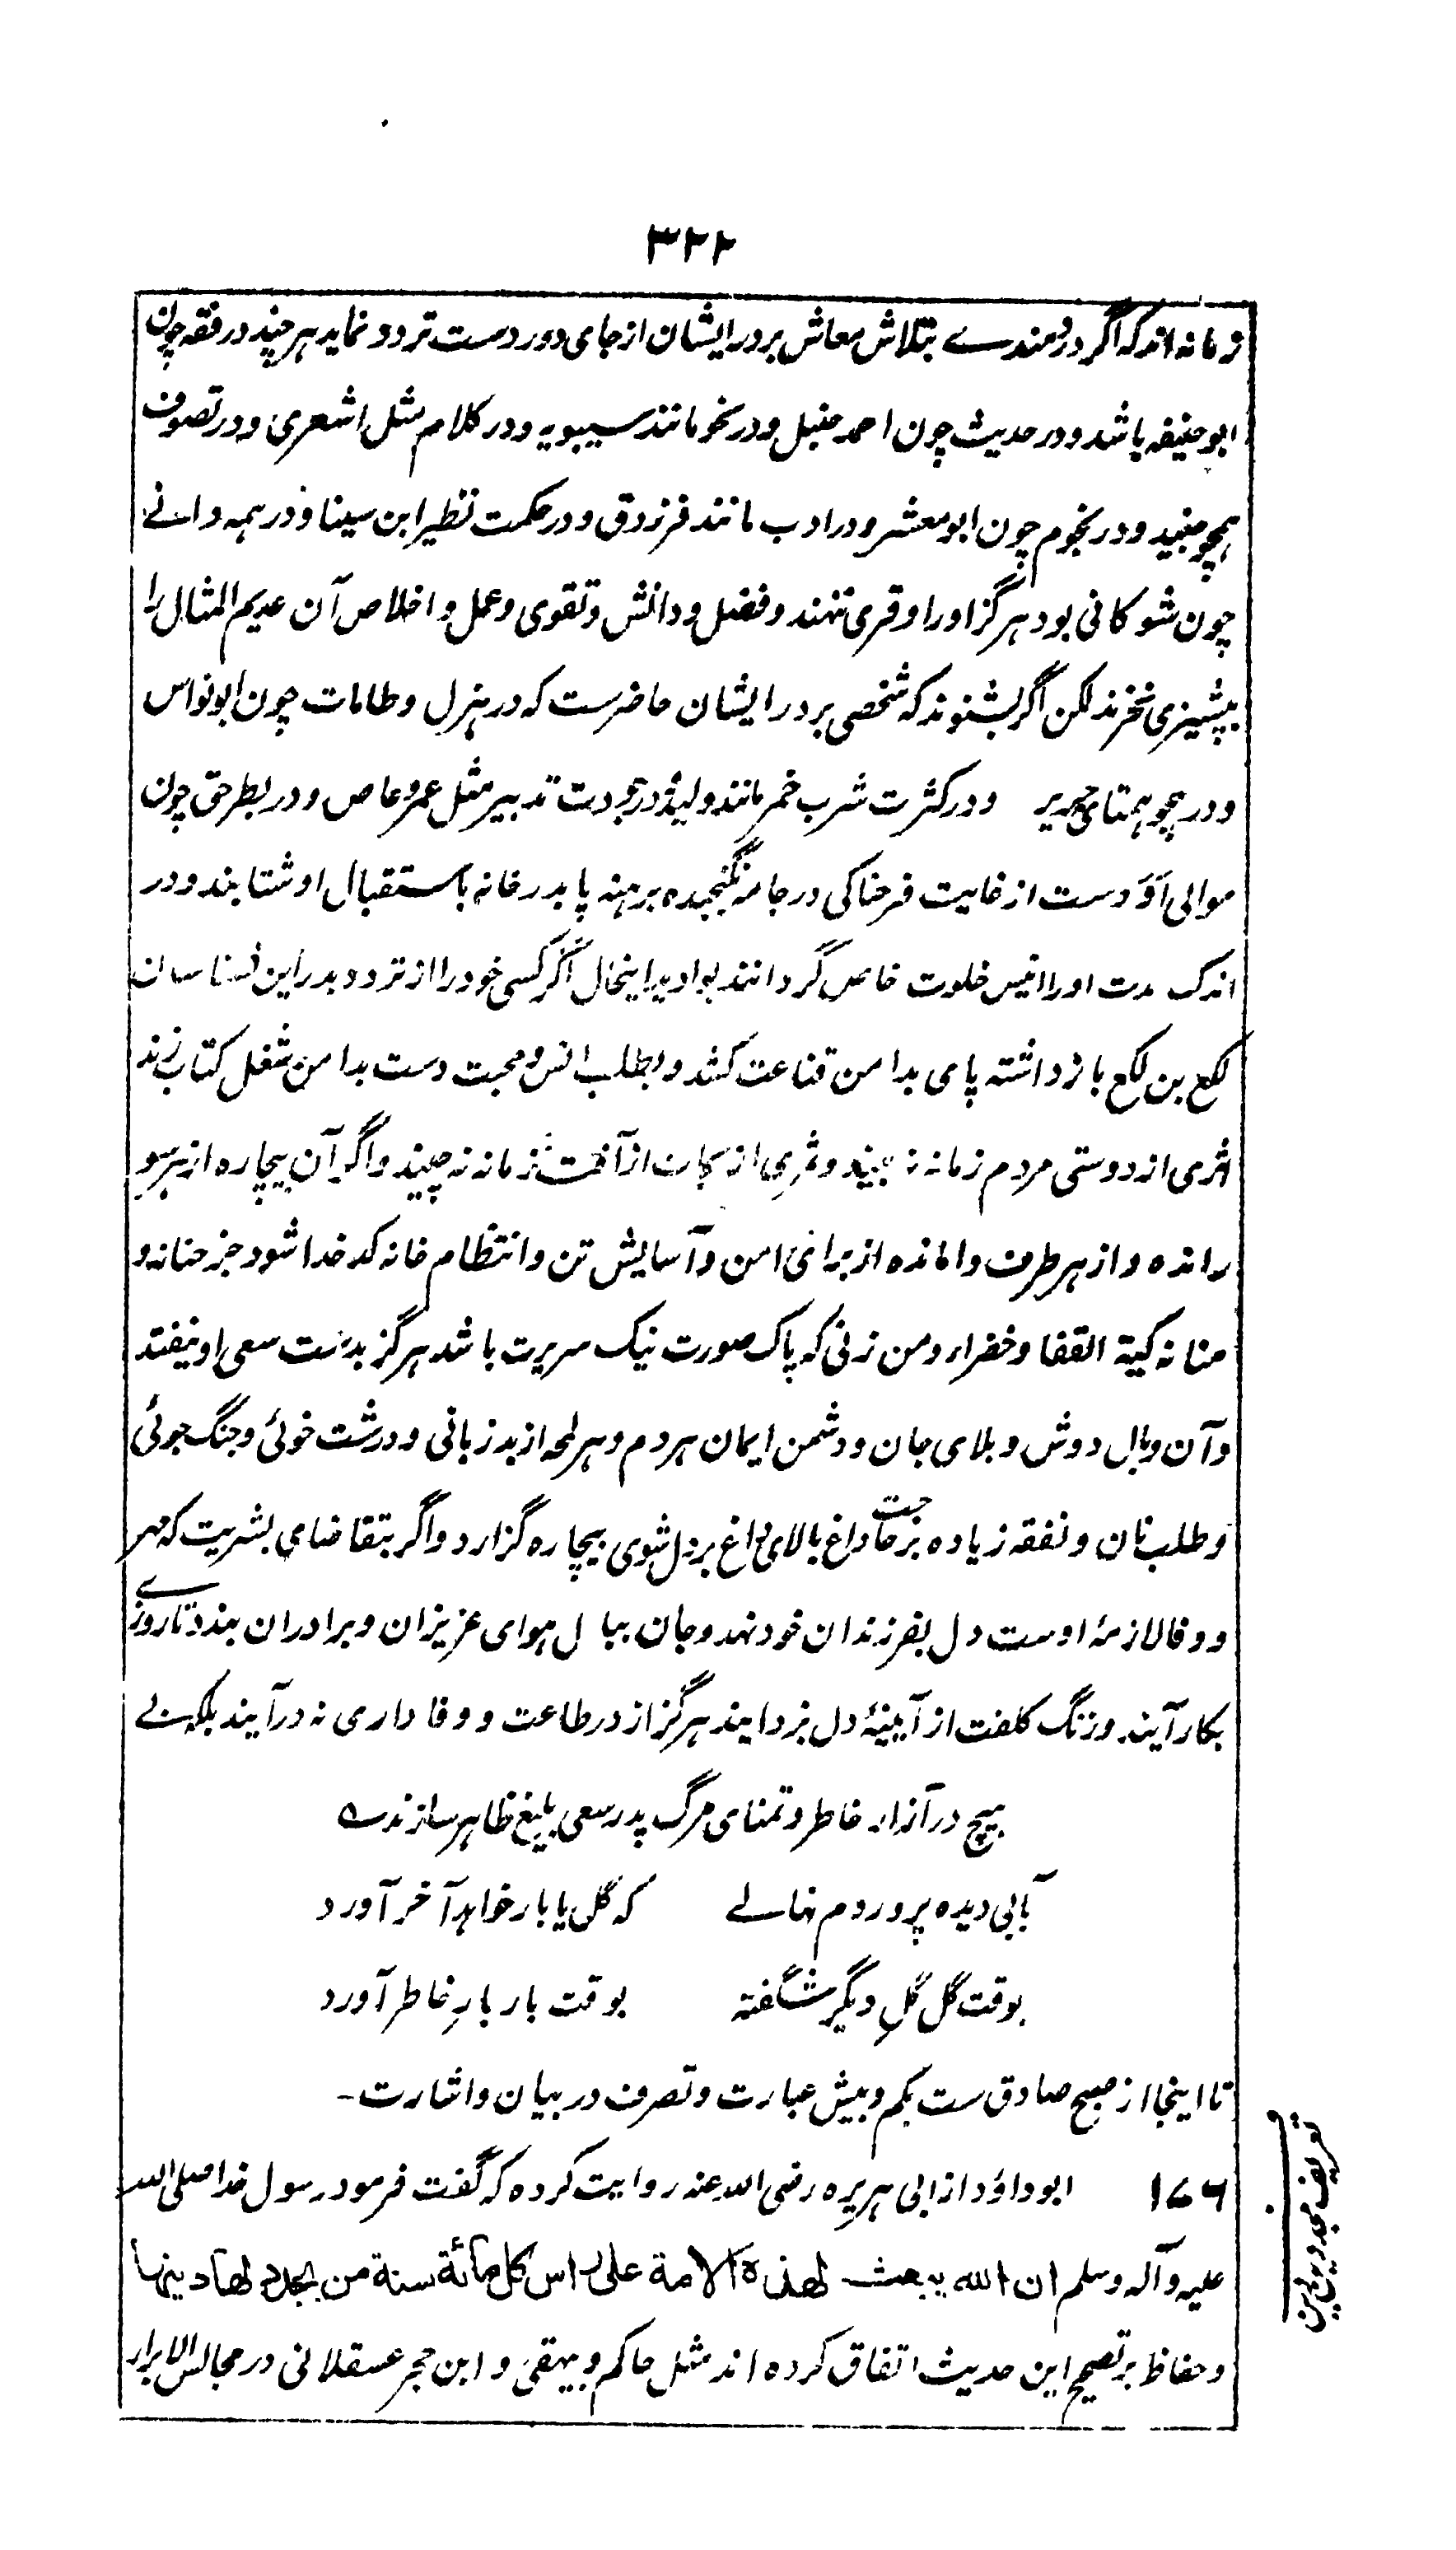 ۳۲۲
زمانه اندکه اگر دردمندے بتلاش معاش بردر ایشان از جای دور دست تردد نماید هر چند در فقه چون
ابوحنیفه باشد و در حدیث چون احمد حنبل و در نحو مانند سیبویه و در کلام مثل اشعری و در تصوف
همچو جنید و در نجوم چون ابومعشر و در ادب مانند فرزدق و در حکمت نظیر ابن سینا و در همه دانے
چون شوکانی بود هرگز او را وقری ننهند و فضل و دانش و تقوی و عمل و اخلاص آن عدیم المثال را
بپشیزی نخرند لکن اگر بشنوند که شخصی بردر ایشان حاضرست که در هزل و طامات چون ابونواس
و در هجو همتای جریر و در کثرت شرب خمر مانند ولید و در جودت تدبیر مثل عمرو عاص و در بطر حق چون
موالی از غایت فرحناکی در جامه نگنجیده برهنه پا بدر خانه باستقبال او شتابند و در
اندک مدت او را انیس خلوت خاص گردانند اینحال اگر کسی خود را از تردد بدر این نسناسان
لکع بن لکع باز داشته پای بدامن قناعت کشد و بطلب انس و محبت دست بدامن شغل کتاب زند
اثری از دوستی مردم زمانه نه بیند و ثمری از نجات از آفت زمانه نه چیند و اگر آن بیچاره از هر سو
رانده و از هر طرف وا مانده از برای امن و آسایش تن و انتظام خانه کدخدا شود جز حنانه و
منانه کیة القفا و خضراء دمن زنی که پاک صورت نیک سریرت باشد هرگز بدست سعی او نیفتد
و آن وبال دوش و بلای جان و دشمن ایمان هر دم و هر لمحه از بد زبانی و درشت خوئی و جنگ جوئی
و طلب نان و نفقه زیاده بر حاجت داغ بالای داغ بر دل شوی بیچاره گزارد و اگر بتقاضای بشریت که مهر
و وفا لازمهٔ اوست دل بفرزندان خود نهد و جان ببال هوای عزیزان و برادران بندد تا روزے
بکار آیند و زنگ کلفت از آیینهٔ دل بزدایند هرگز از در طاعت و وفاداری نه درآیند بلکه بے
هیچ در آزار خاطر و تمنای مرگ پدر سعی بلیغ ظاهر سازند ؎
بآبی دیده پروردم نهالے که گل یا بار خواهد آخر آورد
بوقت گل گلِ دیگر شگفته بوقت بار بارِ خاطر آورد
تا اینجا از صبح صادق ست بکم و بیش عبارت و تصرف در بیان و اشارت -
۱۷۶ ابوداؤد از ابی هریره رضی الله عنه روایت کرده که گفت فرمود رسول خدا صلی الله
علیه و آله وسلم ان الله یبعث لهذه الامة علی راس کل مائة سنة من یجدد لها دینها
و حفاظ بر تصحیح این حدیث اتفاق کرده اند مثل حاکم و بیهقی و ابن حجر عسقلانی در مجالس الابرار
تعریف مجدد